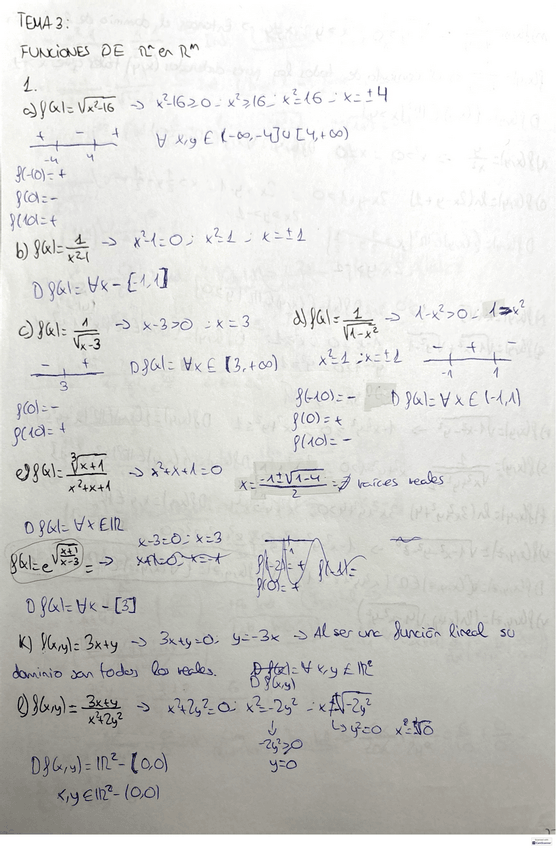 TEMA 3:
FUNCIONES DE Rⁿ en Rᵐ
1.
a) f(x)=√(x²-16) → x²-16≥0 ; x²≥16 ; x²=16 ; x=±4
+ - +
-4 4
∀ x,y ∈ (-∞,-4]∪[4,+∞)
f(-10)=+
f(0)=-
f(10)=+
b) f(x)=1/(x²-1) → x²-1=0 ; x²=1 ; x=±1
Df(x)=∀x-[-1,1]
c) f(x)=1/√(x-3) → x-3>0 ; x=3
- +
3
Df(x)=∀x∈(3,+∞)
f(0)=-
f(10)=+
d) f(x)=1/√(1-x²) → 1-x²>0 ; 1=x²
x²=1 ; x=±1
- + -
-1 1
f(-10)=-
f(0)=+
f(10)=-
Df(x)=∀x∈(-1,1)
e) f(x)=∛(x+1)/(x²+x+1) → x²+x+1=0
x=(-1±√(1-4))/2=∄ raíces reales
Df(x)=∀x∈ℝ
f(x)=e^√((x+1)/(x-3)) = →
x-3=0 ; x=3
x+1=0 ; x=-1
f(-2)=+
f(0)=+
f(-1)=
Df(x)=∀x-[3]
k) f(x,y)=3x+y → 3x+y=0 ; y=-3x → Al ser una función lineal su
dominio son todos los reales. Df(x)=∀ x,y ∈ ℝ²
Df(x,y)
l) f(x,y)=(3x+y)/(x²+2y²) → x²+2y²=0 ; x²=-2y² ; x=±√(-2y²)
↓
-2y²≥0
y=0
↳ y²=0 x=±√0
Df(x,y)=ℝ²-(0,0)
x,y∈ℝ²-(0,0)